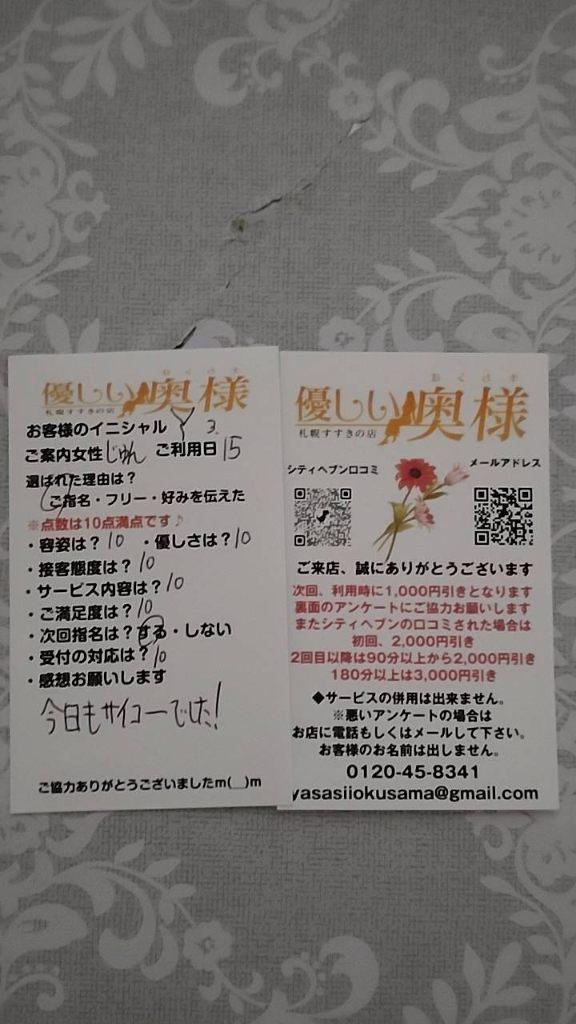 おくさま
優しい奥様
札幌すすきの店
お客様のイニシャル Y
3.
ご案内女性 じゅん ご利用日 15
選ばれた理由は？
ご指名・フリー・好みを伝えた
※点数は10点満点です♪
・容姿は？10 ・優しさは？10
・接客態度は？10
・サービス内容は？10
・ご満足度は？10
・次回指名は？する・しない
・受付の対応は？10
・感想お願いします
今日もサイコーでした！
ご協力ありがとうございましたm(__)m
おくさま
優しい奥様
札幌すすきの店
シティヘブン口コミ
メールアドレス
ご来店、誠にありがとうございます
次回、利用時に1,000円引きとなります
裏面のアンケートにご協力お願いします
またシティヘブンの口コミされた場合は
初回、2,000円引き
2回目以降は90分以上から2,000円引き
180分以上は3,000円引き
◆サービスの併用は出来ません。
※悪いアンケートの場合は
お店に電話もしくはメールして下さい。
お客様のお名前は出しません。
0120-45-8341
yasasiiokusama@gmail.com